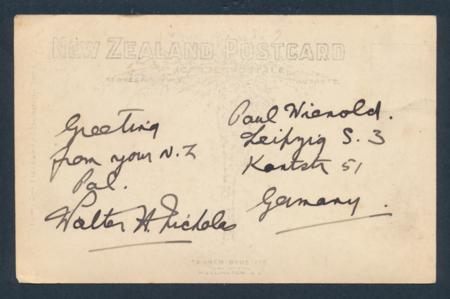 NEW ZEALAND POSTCARD
Greeting
from your N.Z
Pal.
Walter H. Nicholas
Paul Wienold.
Leipzig S. 3
Kantstr 51
Germany.